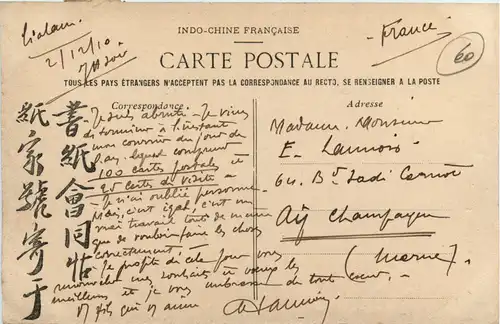 INDO-CHINE FRANÇAISE
CARTE POSTALE
TOUS LES PAYS ÉTRANGERS N'ACCEPTENT PAS LA CORRESPONDANCE AU RECTO, SE RENSEIGNER A LA POSTE
Correspondance
Adresse
2/12/10
France
60
Je suis abruti. Je viens
de terminer à l'instant
mon courrier du jour de
l'an, lequel comprend
100 cartes postales et
25 cartes de visite.
Je n'ai oublié personne
mais, c'est égal, c'est un
vrai travail tout de même
que de vouloir faire les choses
correctement.
Je profite de cela pour vous
renouveler mes souhaits et vœux les
meilleurs et je vous embrasse de tout cœur.
書紙會同帖
紙家號寄于
Madame, Monsieur
E. Lannois
64, Bd Sadi Carnot
Aÿ Champagne
(Marne)